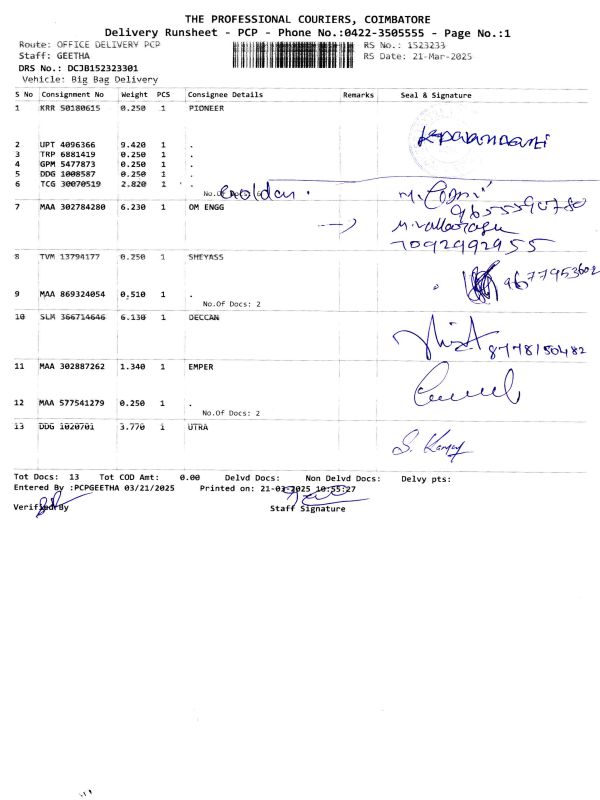 THE PROFESSIONAL COURIERS, COIMBATORE
Delivery Runsheet - PCP - Phone No.:0422-3505555 - Page No.:1
Route: OFFICE DELIVERY PCP RS No.: 1523233
Staff: GEETHA RS Date: 21-Mar-2025
DRS No.: DCJB152323301
Vehicle: Big Bag Delivery
S No Consignment No Weight PCS Consignee Details Remarks Seal & Signature
1 KRR 50180615 0.250 1 PIONEER
2 UPT 4096366 9.420 1 .
3 TRP 6881419 0.250 1 .
4 GPM 5477873 0.250 1 .
5 DDG 1008587 0.250 1 .
6 TCG 30070519 2.820 1 .
No.Of Docs: 6 Golden .
9655590780
7 MAA 302784280 6.230 1 OM ENGG
7092992955
8 TVM 13794177 0.250 1 SHEYASS
9677953602
9 MAA 869324054 0.510 1 .
No.Of Docs: 2
10 SLM 366714646 6.130 1 DECCAN
8778150482
11 MAA 302887262 1.340 1 EMPER
12 MAA 577541279 0.250 1 .
No.Of Docs: 2
13 DDG 1020701 3.770 1 UTRA
Tot Docs: 13 Tot COD Amt: 0.00 Delvd Docs: Non Delvd Docs: Delvy pts:
Entered By :PCPGEETHA 03/21/2025 Printed on: 21-03-2025 10:55:27
Verified By Staff Signature